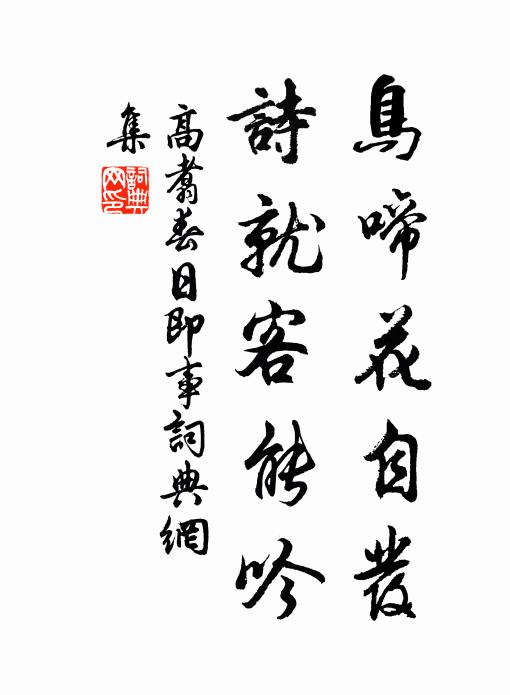 鳥啼花自發
詩就客能吟
高翥春日即事詞典網
集
詞典
网印